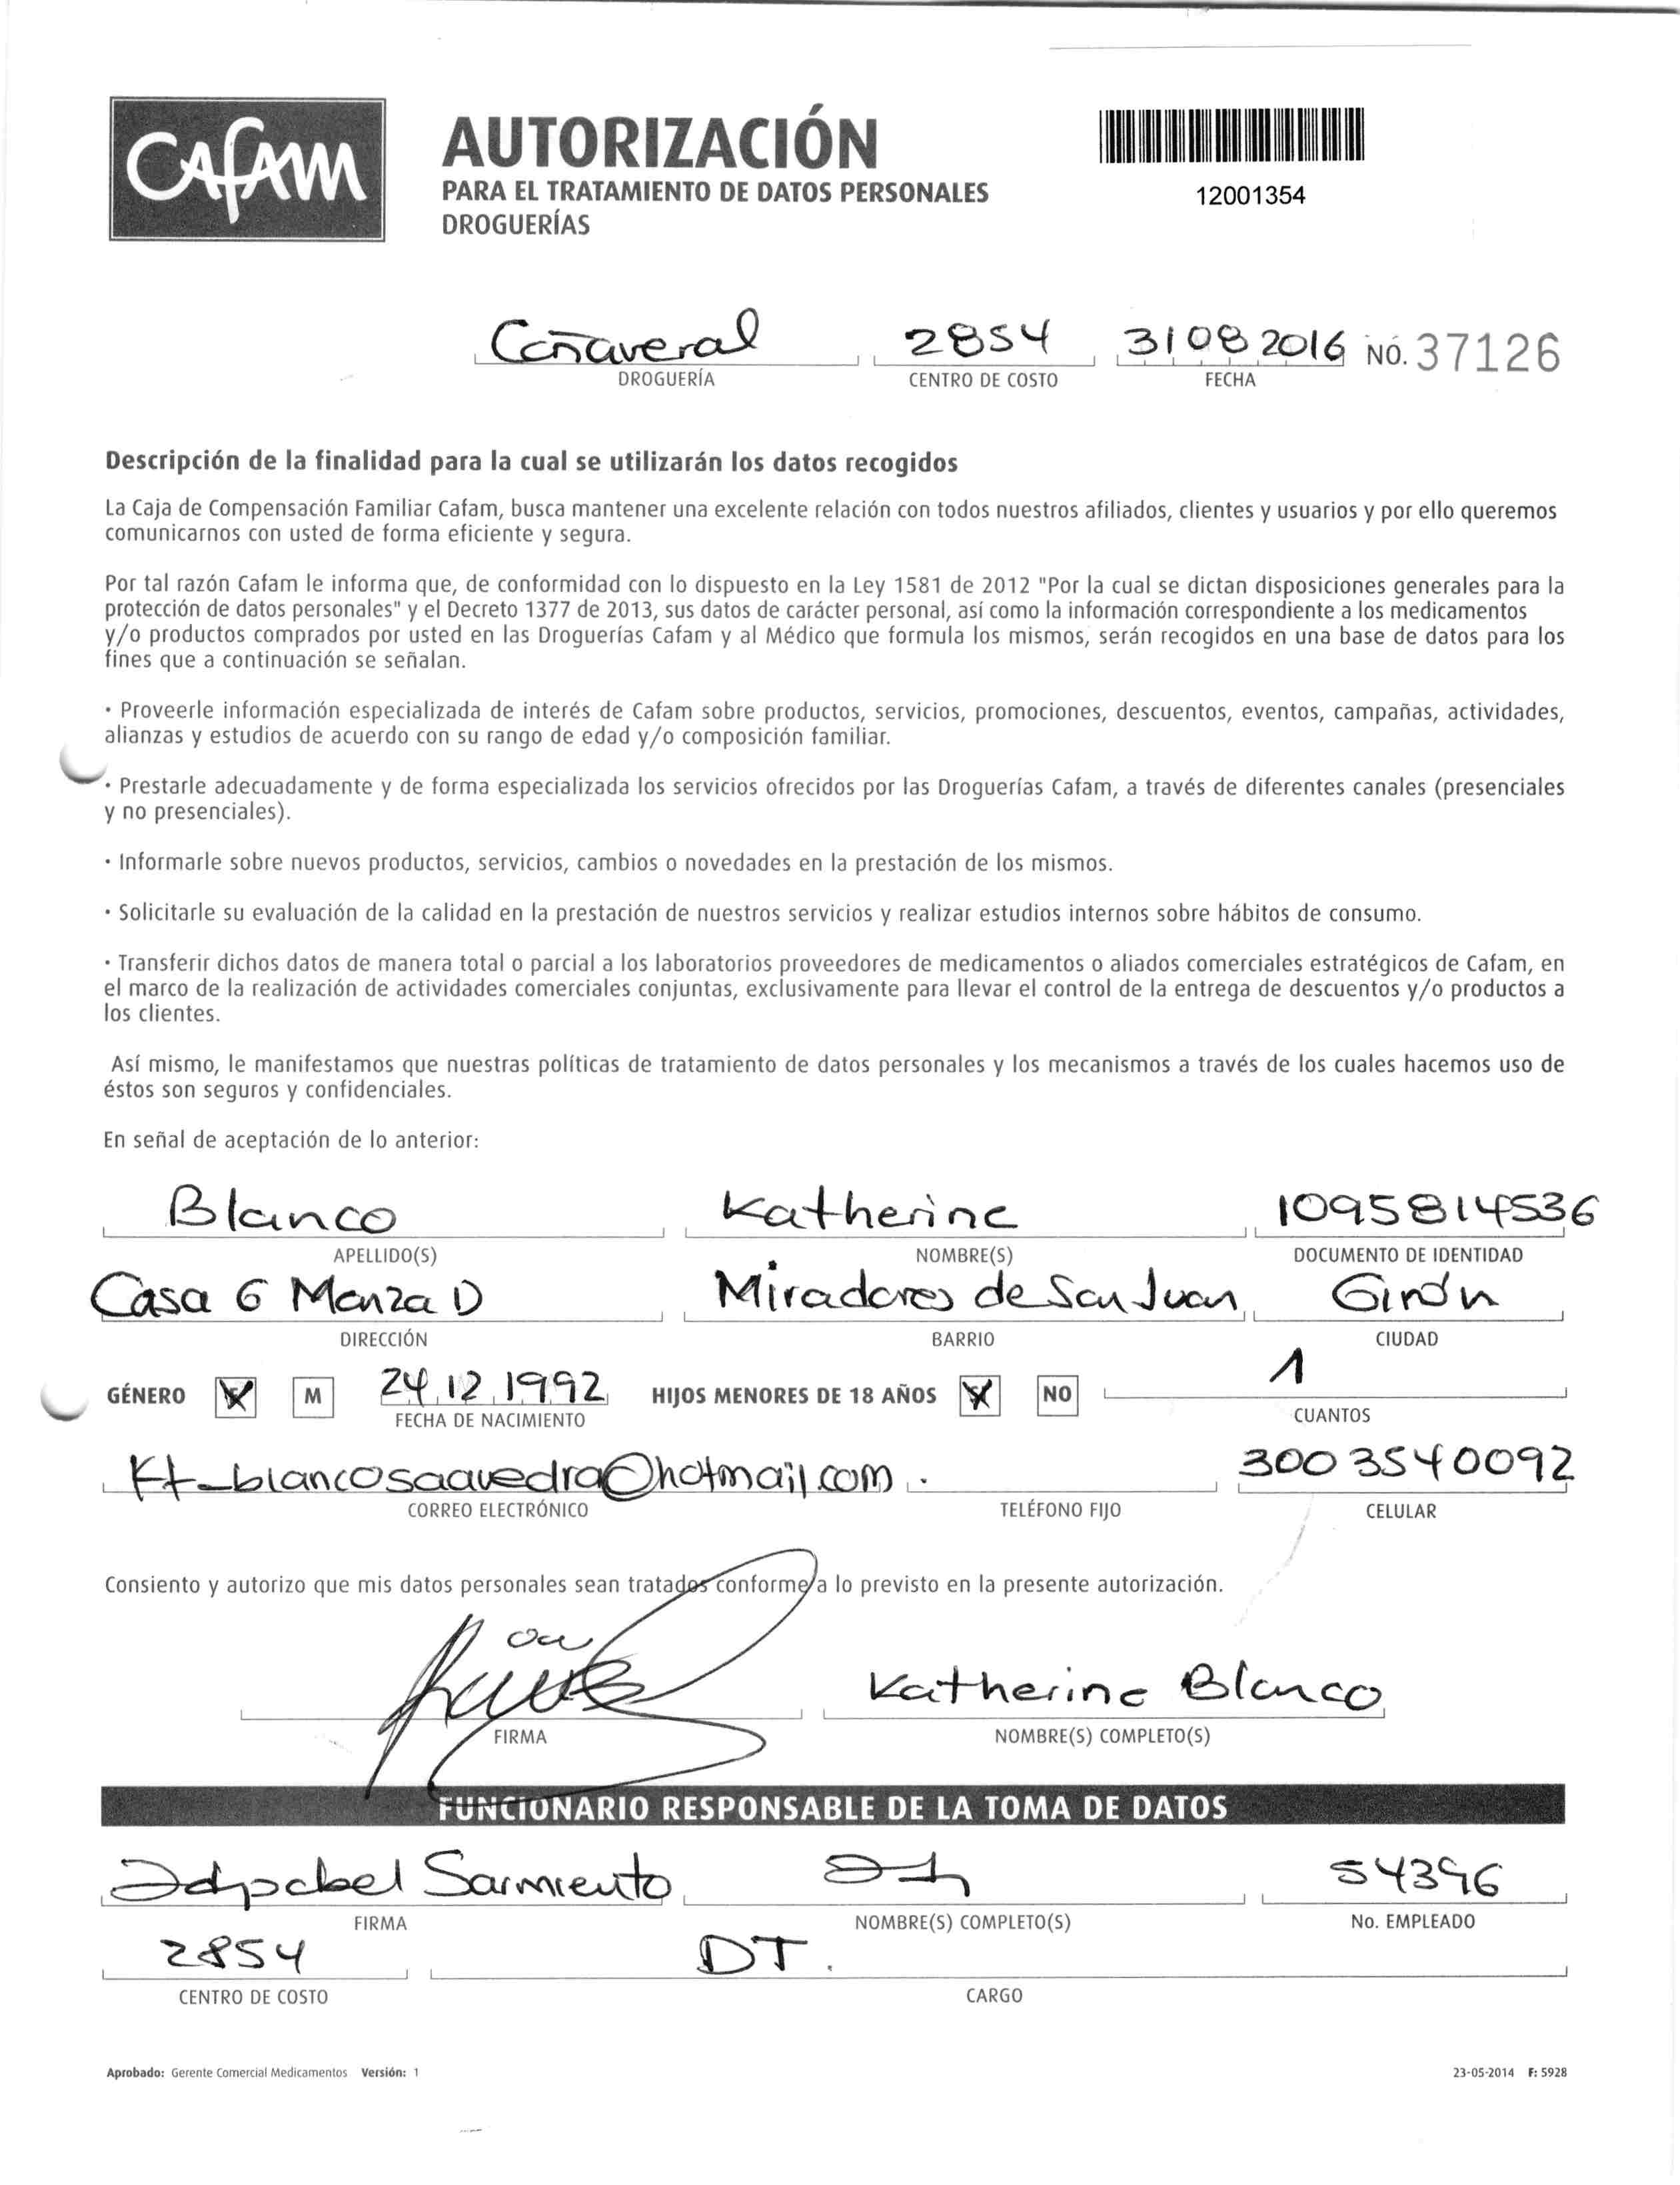 CAFAM
AUTORIZACIÓN
PARA EL TRATAMIENTO DE DATOS PERSONALES
DROGUERÍAS
12001354
Cañaveral 2854 31 08 2016 NO. 37126
DROGUERÍA CENTRO DE COSTO FECHA
Descripción de la finalidad para la cual se utilizarán los datos recogidos
La Caja de Compensación Familiar Cafam, busca mantener una excelente relación con todos nuestros afiliados, clientes y usuarios y por ello queremos
comunicarnos con usted de forma eficiente y segura.
Por tal razón Cafam le informa que, de conformidad con lo dispuesto en la Ley 1581 de 2012 "Por la cual se dictan disposiciones generales para la
protección de datos personales" y el Decreto 1377 de 2013, sus datos de carácter personal, así como la información correspondiente a los medicamentos
y/o productos comprados por usted en las Droguerías Cafam y al Médico que formula los mismos, serán recogidos en una base de datos para los
fines que a continuación se señalan.
· Proveerle información especializada de interés de Cafam sobre productos, servicios, promociones, descuentos, eventos, campañas, actividades,
alianzas y estudios de acuerdo con su rango de edad y/o composición familiar.
· Prestarle adecuadamente y de forma especializada los servicios ofrecidos por las Droguerías Cafam, a través de diferentes canales (presenciales
y no presenciales).
· Informarle sobre nuevos productos, servicios, cambios o novedades en la prestación de los mismos.
· Solicitarle su evaluación de la calidad en la prestación de nuestros servicios y realizar estudios internos sobre hábitos de consumo.
· Transferir dichos datos de manera total o parcial a los laboratorios proveedores de medicamentos o aliados comerciales estratégicos de Cafam, en
el marco de la realización de actividades comerciales conjuntas, exclusivamente para llevar el control de la entrega de descuentos y/o productos a
los clientes.
Así mismo, le manifestamos que nuestras políticas de tratamiento de datos personales y los mecanismos a través de los cuales hacemos uso de
éstos son seguros y confidenciales.
En señal de aceptación de lo anterior:
Blanco Katherine 1095814536
APELLIDO(S) NOMBRE(S) DOCUMENTO DE IDENTIDAD
Casa 6 Manza D Miradores de San Juan Girón
DIRECCIÓN BARRIO CIUDAD
GÉNERO M 24 12 1992 HIJOS MENORES DE 18 AÑOS NO 1
FECHA DE NACIMIENTO CUANTOS
Kt_blancosaavedra@hotmail.com. 300 3540092
CORREO ELECTRÓNICO TELÉFONO FIJO CELULAR
Consiento y autorizo que mis datos personales sean tratados conforme a lo previsto en la presente autorización.
Katherine Blanco
FIRMA NOMBRE(S) COMPLETO(S)
FUNCIONARIO RESPONSABLE DE LA TOMA DE DATOS
Sarmiento 54396
FIRMA NOMBRE(S) COMPLETO(S) No. EMPLEADO
2854 DT.
CENTRO DE COSTO CARGO
Aprobado: Gerente Comercial Medicamentos Versión: 1 23-05-2014 F: 5928